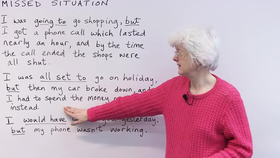 MISSED SITUATION
I was going to go shopping, but
I got a phone call which lasted
nearly an hour, and by the time
the call ended the shops were
all shut.
I was all set to go on holiday,
but then my car broke down, and
I had to spend the money on
instead.
I would have yesterday,
but my phone wasn't working.